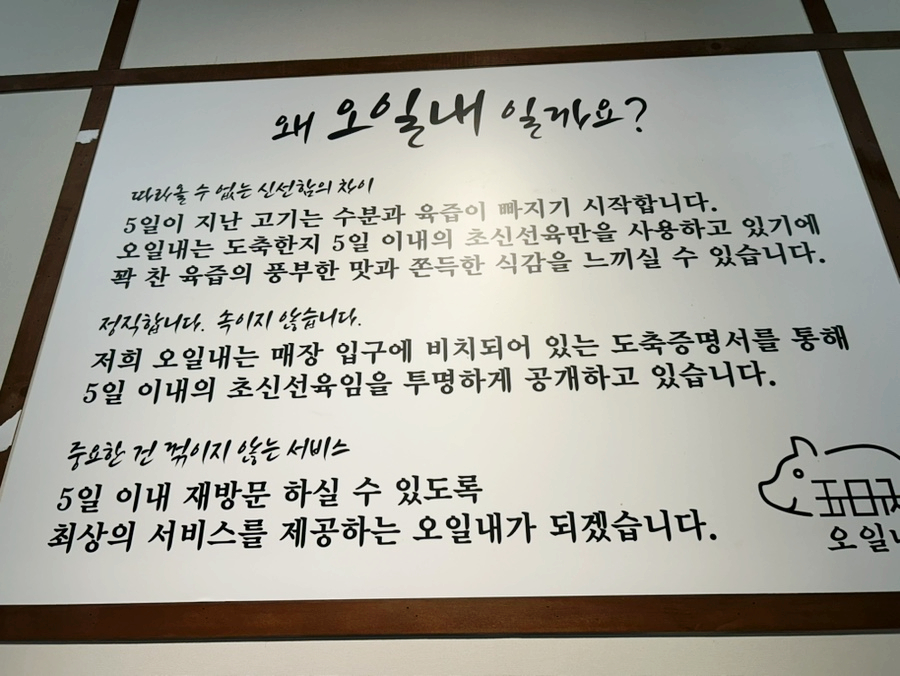 왜 오일내 일까요?
따라올 수 없는 신선함의 차이
5일이 지난 고기는 수분과 육즙이 빠지기 시작합니다.
오일내는 도축한지 5일 이내의 초신선육만을 사용하고 있기에
꽉 찬 육즙의 풍부한 맛과 쫀득한 식감을 느끼실 수 있습니다.
정직합니다. 속이지 않습니다.
저희 오일내는 매장 입구에 비치되어 있는 도축증명서를 통해
5일 이내의 초신선육임을 투명하게 공개하고 있습니다.
중요한 건 꺾이지 않는 서비스
5일 이내 재방문 하실 수 있도록
최상의 서비스를 제공하는 오일내가 되겠습니다.
五日
오일